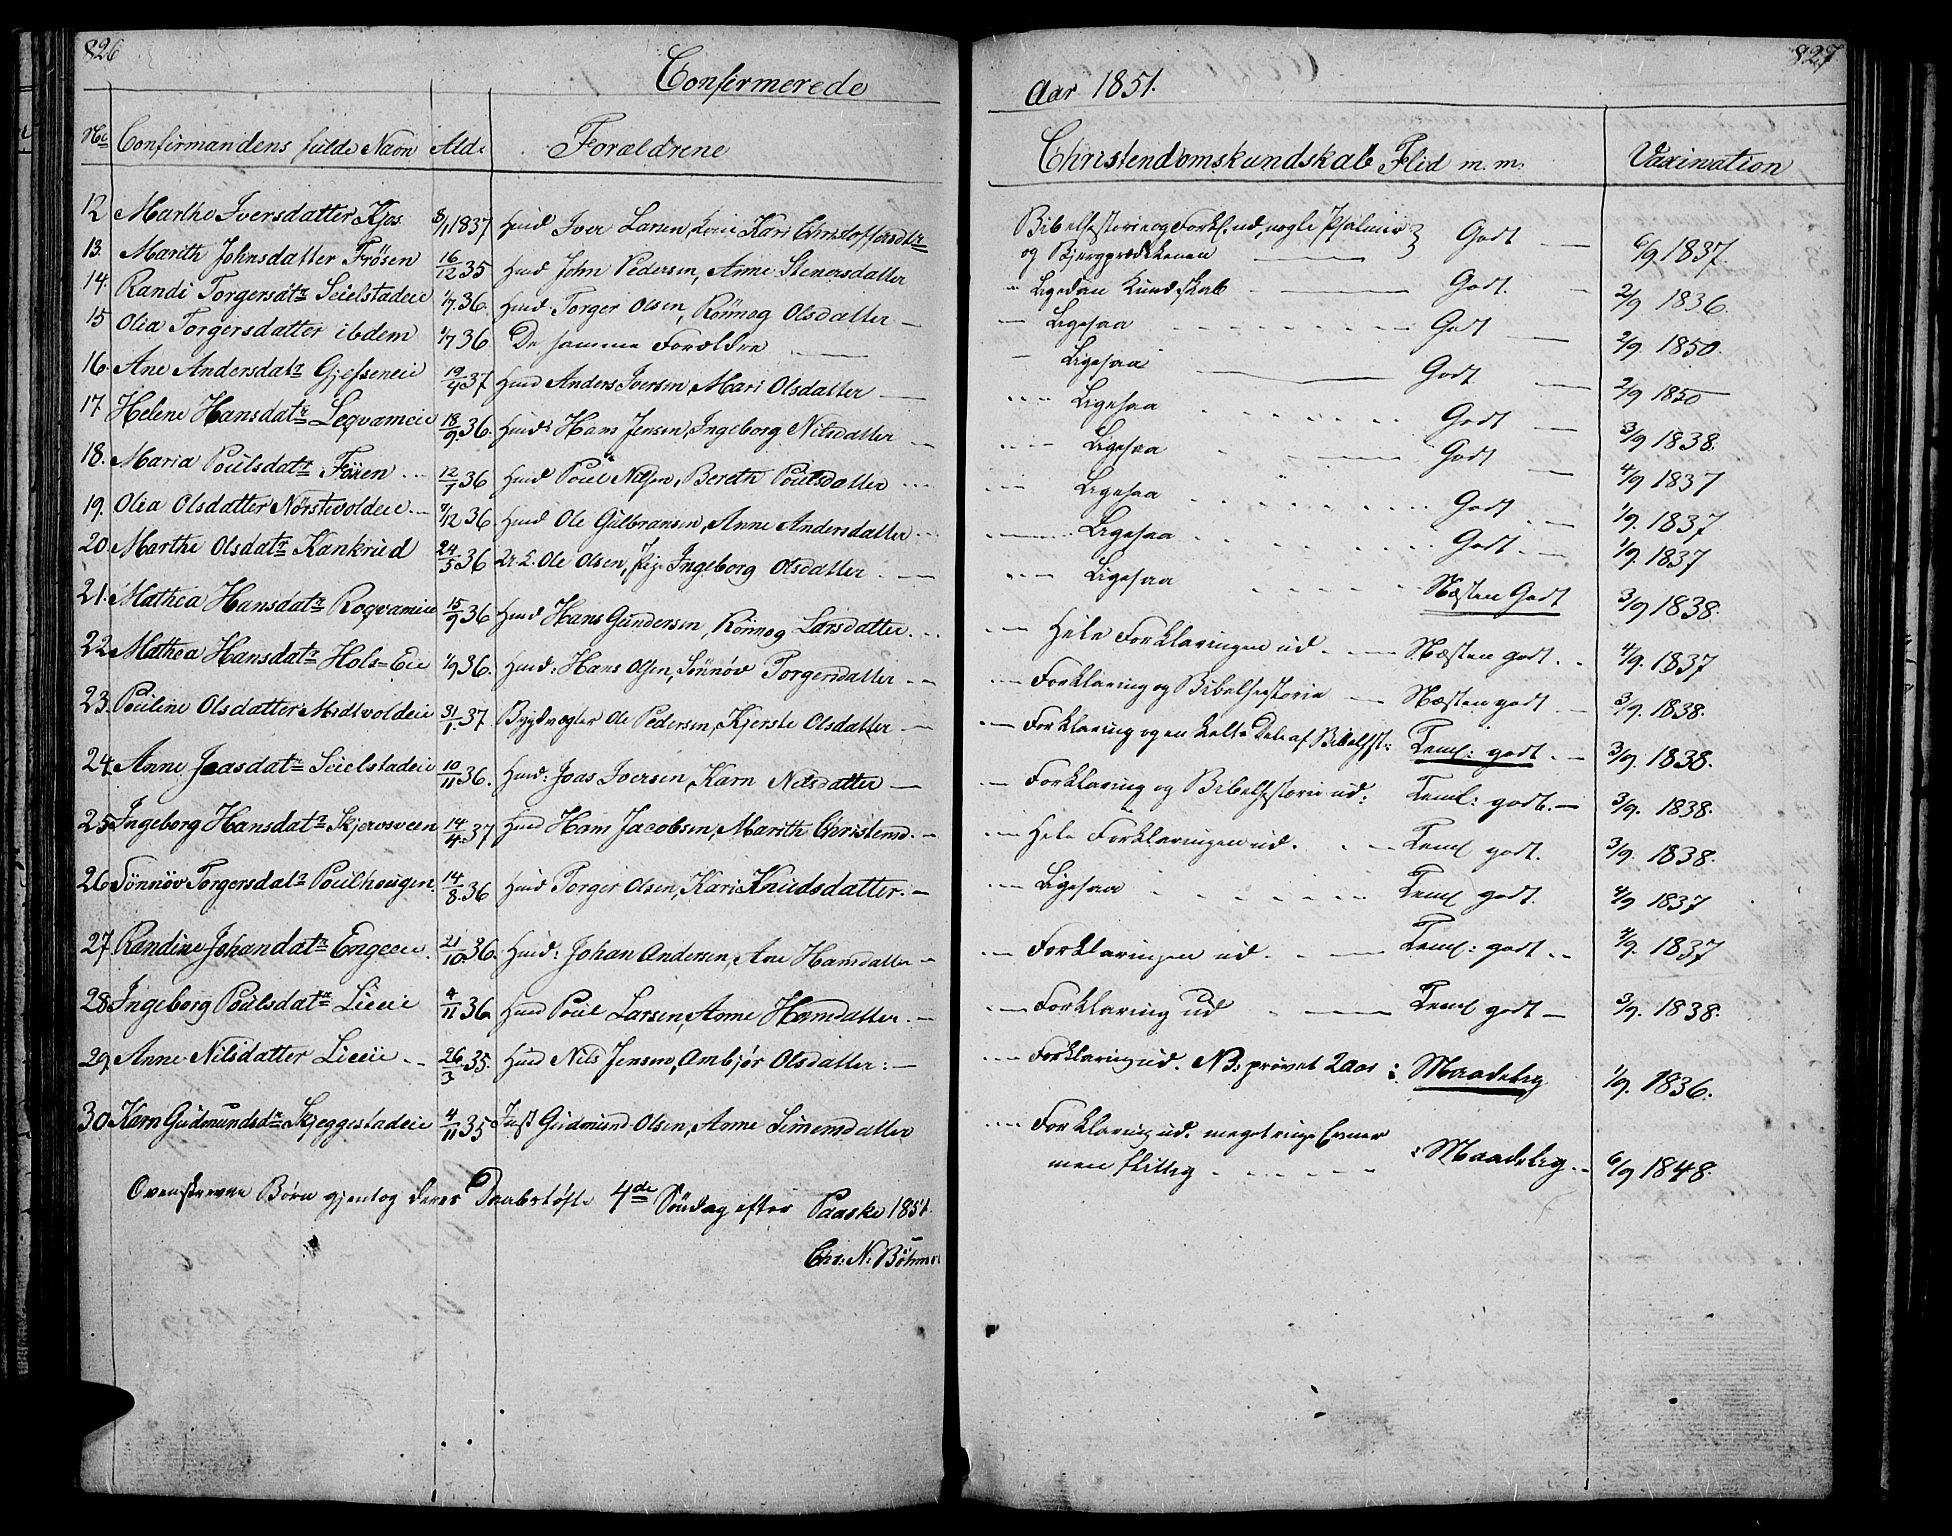 826
Confirmerede
No Confirmandens fulde Navn Ald. Forældrene
12 Marthe Iversdatter Kjos 3/1 1837 Huusd Iver Larsen, Kone Kari Christoffersdtr
13. Marith Johnsdatter Frösen 16/12 35 Huusd John Pedersen, Anne Stenersdatter
14. Randi Torgersdtr Seielstadeie 1/7 36. Huusd. Torger Olsen, Rönnog Olsdatter —
15 Olia Torgersdatter ibdem 1/7 36 De samme Forældre —
16. Ane Andersdatr Gjefseneie 19/4 37 Huusd Anders Iversen, Mari Olsdatter —
17. Helene Hansdatr Leqvameie 18/9 36. Huusd: Hans Jensen, Ingeborg Nilsdatter —
18. Maria Poulsdatr Föien ... 12/7 36 Huusd Poul Nilsen, Berath Poulsdatter ...
19. Olia Olsdatter Nörstevoldeie — 9/12 36 Huusd Ole Gulbransen, Anne Andersdatter ...
20. Marthe Olsdatr Kankrud 24/5 36 U. E. Ole Olsen, Pige Ingeborg Olsdatter. —
21. Mathea Hansdatr Roqvameie 15/9 36 Huusd Hans Gundersen, Rönnog Larsdatter. ..
22. Mathea Hansdatr Hols=Eie 1/9 36. Huusd: Hans Olsen, Sönnöv Torgersdatter - —
23. Pouline Olsdatter Midtvoldeie 31/1. 37. Bygdvægter Ole Pedersen, Kjerste Olsdatter —
24. Anne Joasdatr Seielstadeie 10/11 36. Huusd: Joas Iversen, Karn Nilsdatter —
25. Ingeborg Hansdatr Skjervsveen 14/4 37 Huusd Hans Jacobsen, Marith Christensd. -
26. Sönnöv Torgersdatr Poulhougen 14/8. 36 Huusd Torger Olsen, Kari Knudsdatter. -
27. Randine Johandatr Engeeie. 21/10. 36. Huusd: Johan Andersen, Ane Hansdatter -
28. Ingeborg Poulsdatr Lieeie 4/11 36. Huusd Poul Larsen, Anne Hansdatter. —
29. Anne Nilsdatter Lieeie - 26/3 35. Huusd Nils Jensen, Ambjör Olsdatter: —
30. Karn Gudmundsdtr Skjeggestadeie 4/11 35 Inst Gudmund Olsen, Anne Simensdatter
Ovenskrevne Börn gjentog deres Daabslöfte 4de Söndag efter Paaske 1851.
Chr: N. Böhmer
827
Aar 1851.
Christendomskundskab Flid m. m: Vaxination
Bibelhistorie og Forkl. ud, nogle Psalmer
og Bjergprædikenen — } Godt — 6/9 1837.
- Ligedan Kundskab — Godt. — 2/9 1836.
— Ligesaa Godt — 2/9. 1850.
— Ligesaa — Godt — 2/9 1850
Ligesaa Godt — 3/9 1838.
Ligesaa Godt — 4/9 1837
Ligesaa Godt — 1/9. 1837
Ligesaa Godt. — 1/9. 1837
Ligesaa Næsten Godt 3/9 1838.
— Hele Forklaringen ud. — Næsten godt. - 4/9. 1837
— Forklaring og Bibelhistorie — Næsten godt — 3/9. 1838.
— Forklaring og en Deel af Bibelhist: Teml: godt. — 3/9. 1838.
— Forklaring og Bibelhistorie ud: Teml: godt. — 3/9. 1838.
— Hele Forklaringen ud. — Teml godt. 3/9. 1838.
— Ligesaa Teml godt. 4/9 1837
— Forklaringen ud. — Teml: godt .. 4/9. 1837
— Forklaring ud — Teml godt — 3/9. 1838.
— Forklaring ud. NB: prövet 2 Aar : Maadelig 1/9. 1836.
— Forklaring ud. meget ringe Evner
men flittig Maadelig. - 6/9 1848.